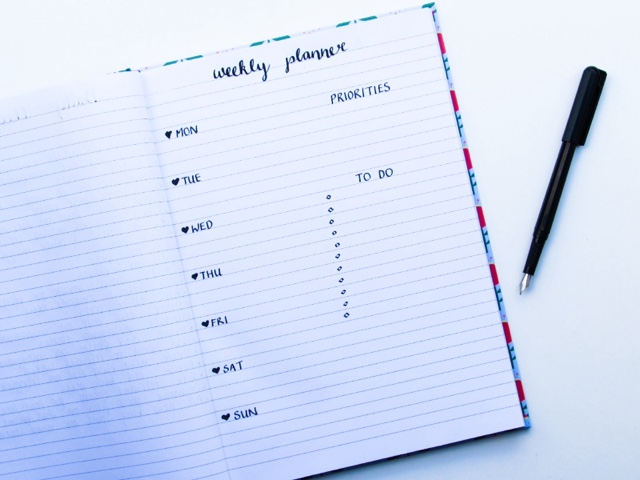 weekly planner
PRIORITIES
MON
TUE
TO DO
WED
THU
FRI
SAT
SUN